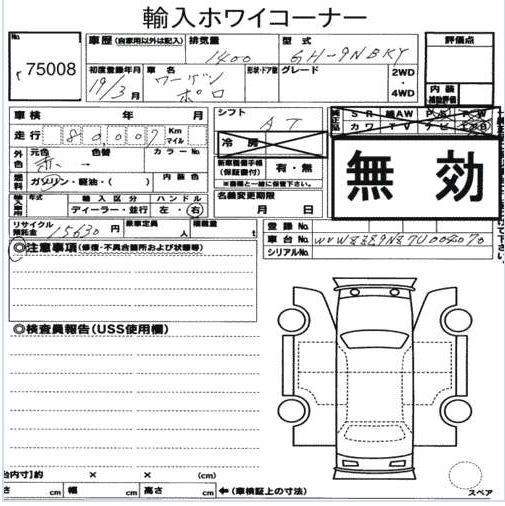 輸入ホワイコーナー
No.
75008
車歴 (自家用以外は記入) 排気量 型式
1400 GH-9NBKY
評価点
初度登録年月 車名 形状・ドア数 グレード
19/3月 ワーゲン ポロ
2WD
・
4WD
内装
補助評価
車検 年 月
シフト
AT
走行 80,007 Km マイル
冷房
SR 純AW PS PW
カワ TV ナビ エアB
無効
外色 元色 色替 カラーNo.
赤 →
内装色
燃料 ガソリン・軽油・( )
新車整備手帳(保証書付) 有・無
※書類と一緒に保管下さい。
年式 輸入区分 ハンドル
ディーラー・並行 左・右
名義変更期限
月 日
リサイクル預託金 15630 円 乗車定員 人 積載量 t
登録No.
車台No. WVWZZZ9NZ7U004070
シリアルNo.
◎注意事項(修復・不具合箇所および状態等)
◎検査員報告(USS使用欄)
台内寸)約 × × (cm)
さ cm 幅 cm 高さ cm ←(車検証上の寸法)
スペア